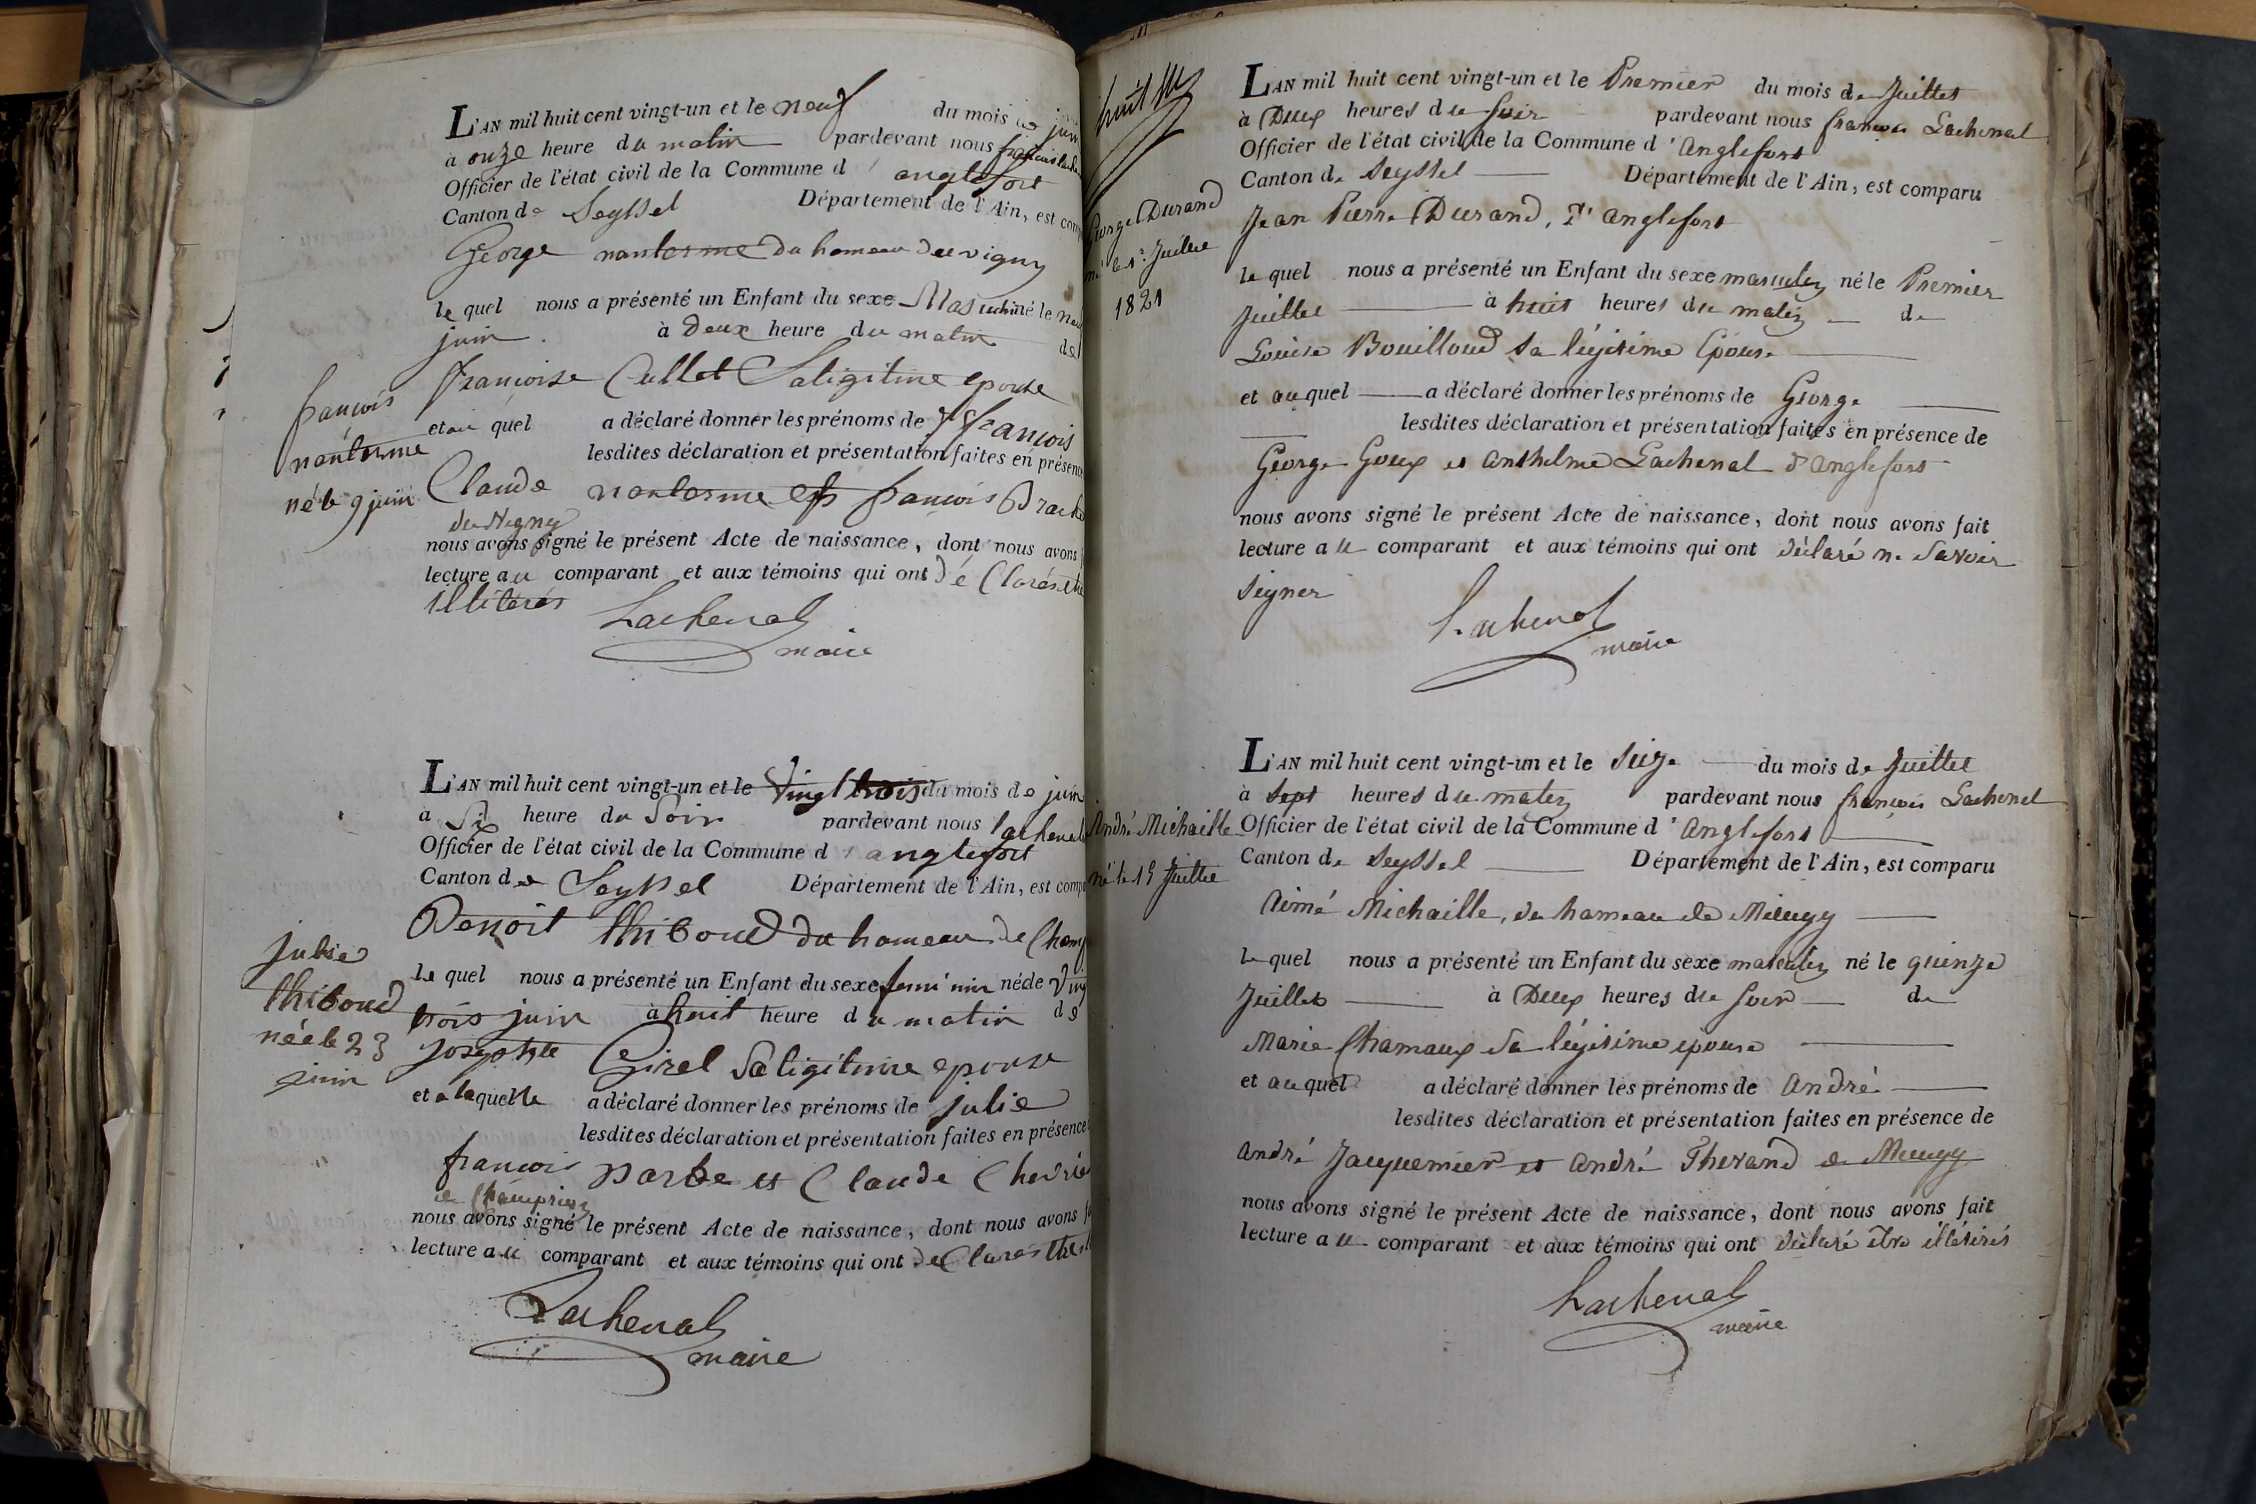 L'AN mil huit cent vingt-un et le neuf du mois de juin
à onze heure du matin pardevant nous françois
Officier de l'état civil de la Commune d' anglefort
Canton de Seyssel Département de l'Ain, est
George nanterme du hameau de vigny
le quel nous a présenté un Enfant du sexe Masculin né le
juin à deux heure du matin de
françoise Cullet Saligitime epouse
et au quel a déclaré donner les prénoms de françois
lesdites déclaration et présentation faites en
Claude nanterme et françois
de
nous avons signé le présent Acte de naissance, dont nous avons
lecture au comparant et aux témoins qui ont déClarés
illiterés
Lachenal
maire
françois
nanterme
né le 9 juin
L'AN mil huit cent vingt-un et le Vingt trois du mois de juin
à Six heure du Soir pardevant nous lachenal
Officier de l'état civil de la Commune d' anglefort
Canton de Seyssel Département de l'Ain, est
Benoit thiboud du hameau de
le quel nous a présenté un Enfant du sexe feminin né de
trois juin à huit heure du matin de
Josephte Girel Saligitime epouse
et a laquelle a déclaré donner les prénoms de julie
lesdites déclaration et présentation faites en présence
françois et Claude
de
nous avons signé le présent Acte de naissance, dont nous avons
lecture au comparant et aux témoins qui ont
Lachenal
maire
julie
thiboud
née le 23
juin
huit
George Durand
né le 1r Juillet
1821
L'AN mil huit cent vingt-un et le Premier du mois de Juillet
à Deux heures du Soir pardevant nous françois Lachenal
Officier de l'état civil de la Commune d' Anglefort
Canton de Seyssel Département de l'Ain, est comparu
Jean Pierre Durand, d'anglefort
le quel nous a présenté un Enfant du sexe masculin né le Premier
Juillet à huit heures du matin de
Louise Bouilloud sa légitime Epouse
et au quel a déclaré donner les prénoms de George
lesdites déclaration et présentation faites en présence de
George Goux et Anthelme Lachenal d'anglefort
nous avons signé le présent Acte de naissance, dont nous avons fait
lecture au comparant et aux témoins qui ont déclaré ne Savoir
signer
Lachenal
maire
André Michaille
né le 15 Juillet
L'AN mil huit cent vingt-un et le Seize du mois de Juillet
à Sept heures du matin pardevant nous françois Lachenal
Officier de l'état civil de la Commune d' Anglefort
Canton de Seyssel Département de l'Ain, est comparu
Aimé Michaille, du hameau de
le quel nous a présenté un Enfant du sexe masculin né le quinze
Juillet à Deux heures du Soir de
Marie Chamaux sa légitime épouse
et au quel a déclaré donner les prénoms de André
lesdites déclaration et présentation faites en présence de
André Jacquemier et André Therand de
nous avons signé le présent Acte de naissance, dont nous avons fait
lecture au comparant et aux témoins qui ont déclaré être illitérés
Lachenal
maire